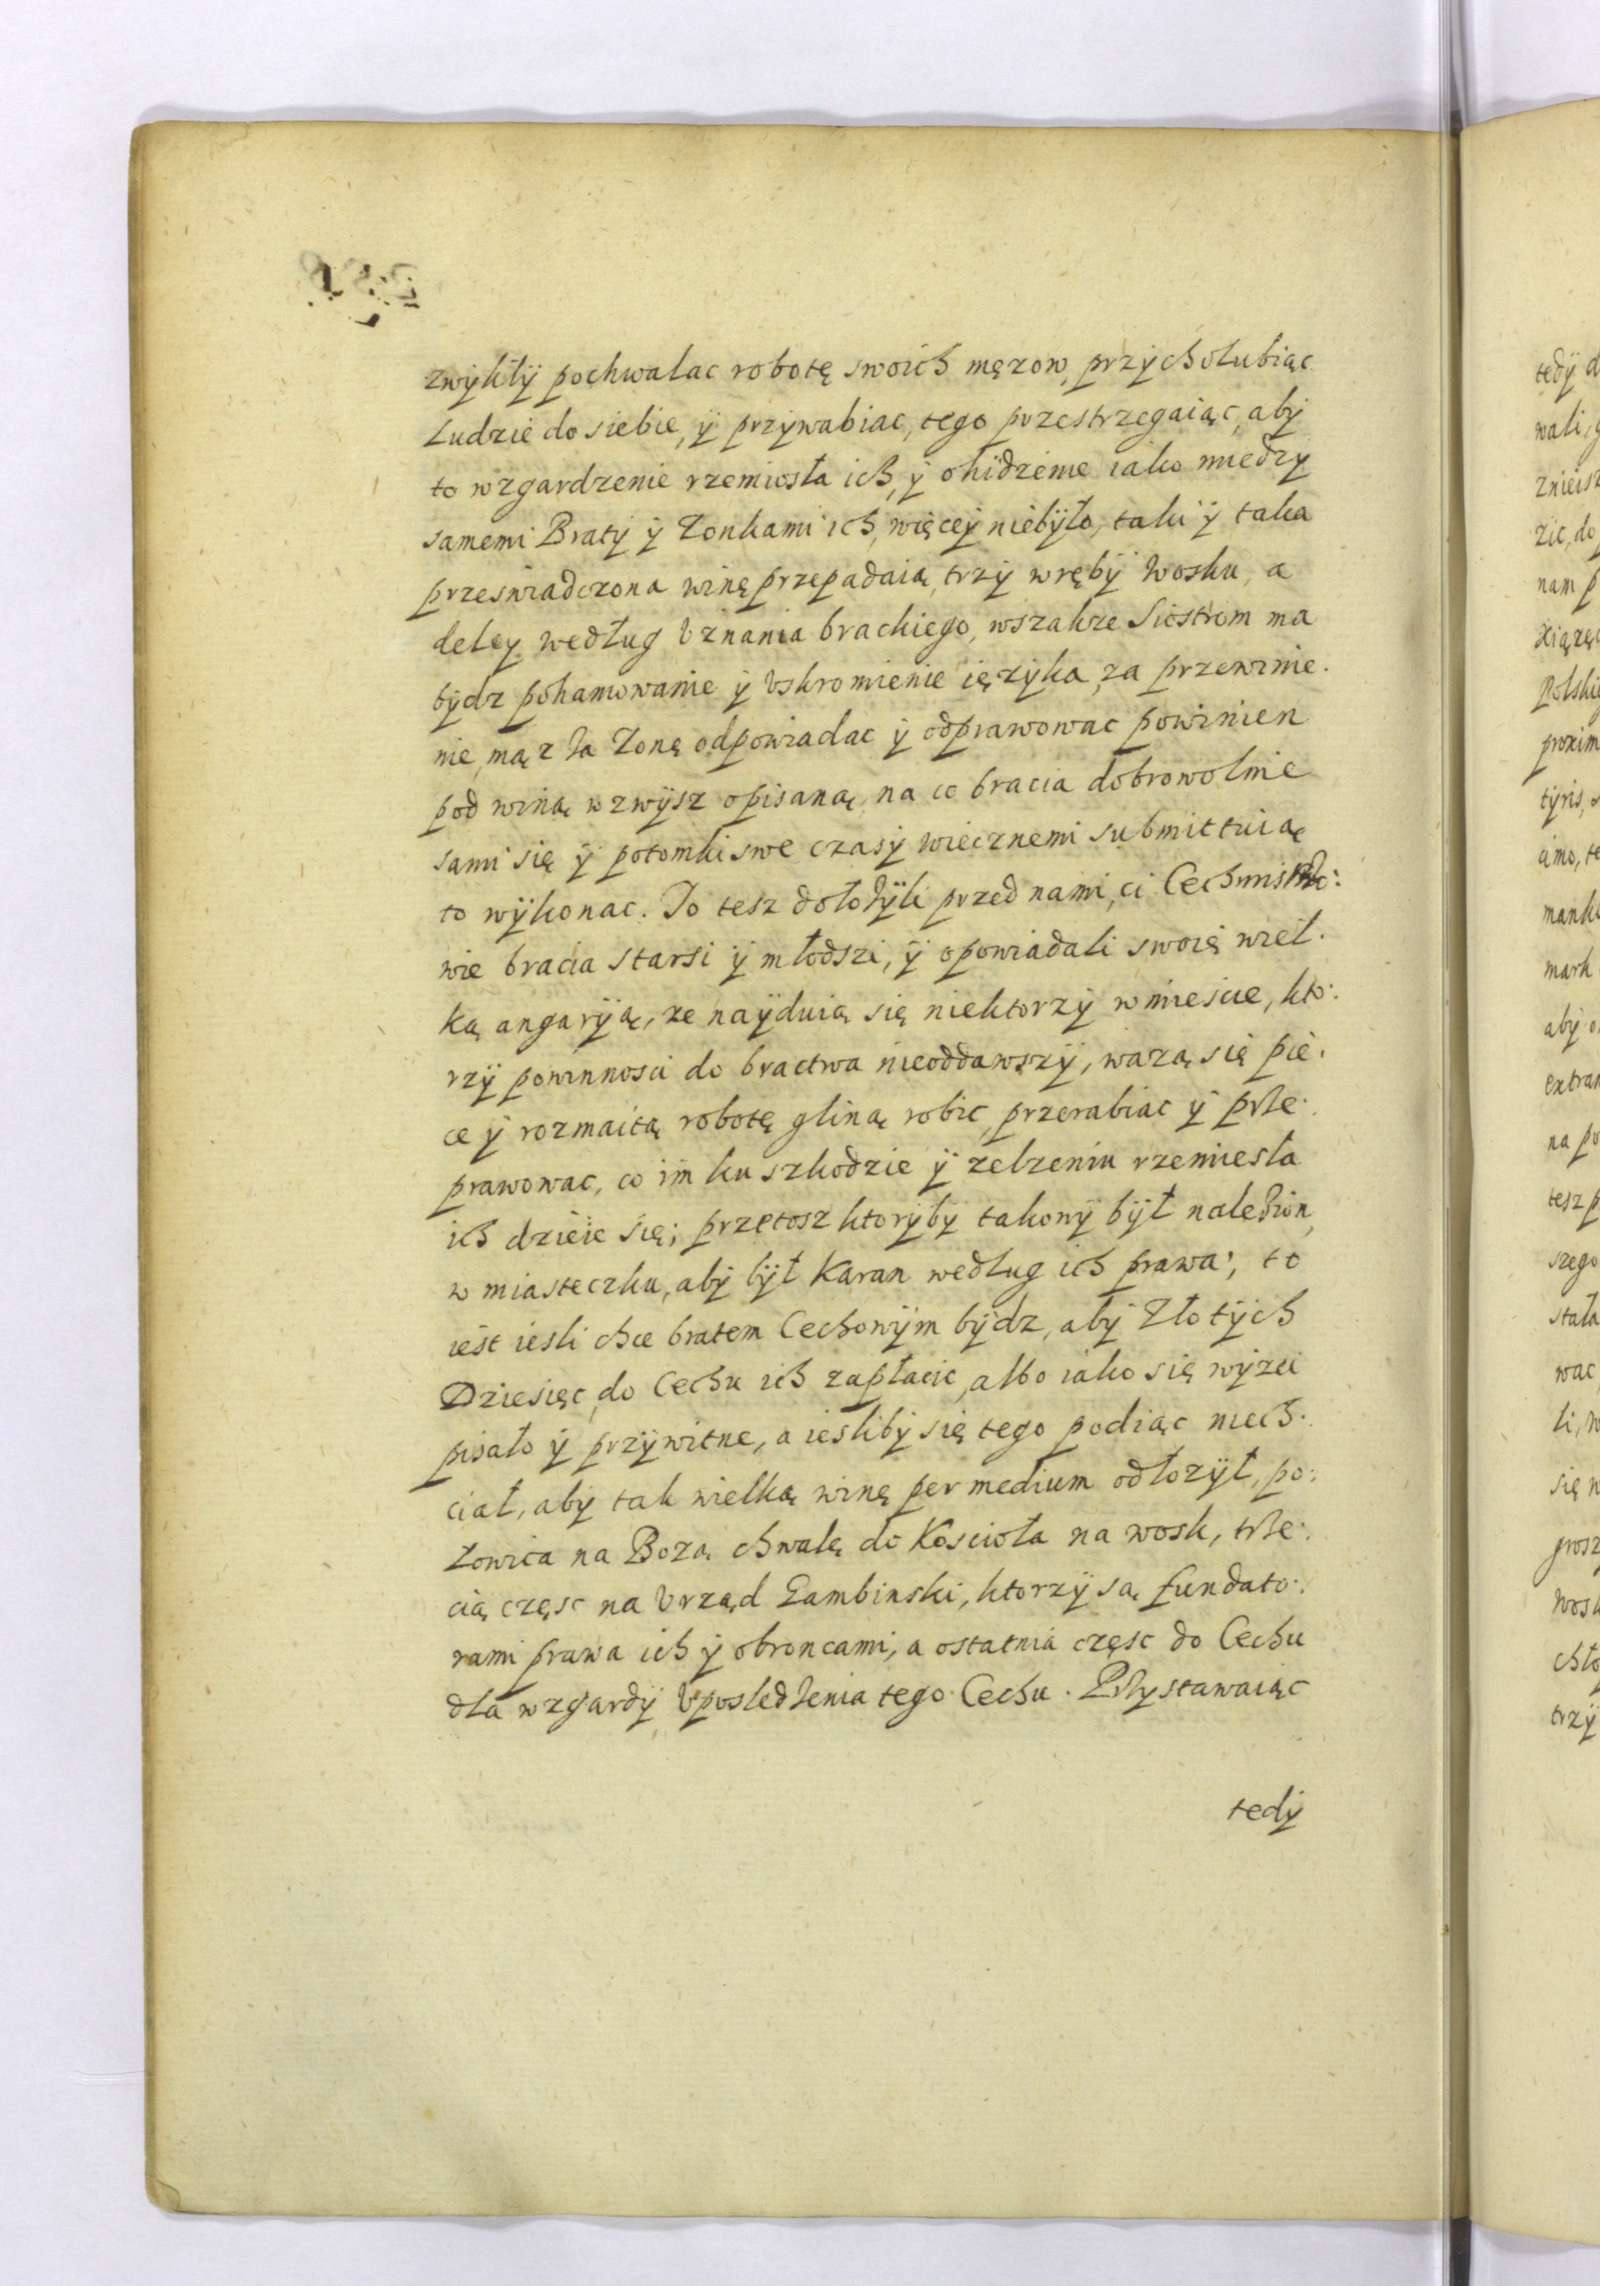 zwykły pochwalac robotę swoich męzow, przycholubiąc
Ludzie do siebie, ÿ przywabiac, tego przestrzegaiąc, aby
to wzgardzenie rzemiosła ich, ÿ ohidzenie iako między
samemi Braty ÿ Zonkami ich, więceÿ niebÿło, taki ÿ taka
przeswiadczona winę przepadaią, trzÿ wręby Wosku, a
deley według Vznania brackiego, wszakze Siostrom ma
bydz pohamowanie ÿ Vskromienie ięzyka, za przewinie.
nie, mąz za Zonę odpowiadac ÿ odprawowac powinien
pod winą wzwÿsz opisaną, na co bracia dobrowolnie
sami się ÿ potomki swe czasÿ wiecznemi submittuią
to wÿkonac. To tesz dołożÿli przed nami, ci Cechmistrzo:
wie bracia starsi ÿ młodszi, ÿ opowiadali swoię wiel.
ką angarÿą, ze naÿduią się niektorzÿ w miescie, kto:
rzÿ powinnosci do bractwa nieoddawszÿ, wazą się pie.
ce ÿ rozmaitą robotę gliną robic, przerabiac ÿ prze:
prawowac, co im ku szkodzie ÿ zelzeniu rzemiesła
ich dzieie się; przetosz ktorÿbÿ takowÿ bÿł nalezion
w miasteczku, abÿ bÿł Karan według ich prawa; to
iest iesli chce bratem Cechowÿm bÿdz, abÿ Złotÿch
Dziesięc do Cechu ich zapłacic, albo iako się wÿzei
pisało ÿ przÿwitne, a iesliby się tego podiąc niech.
ciał, abÿ tak wielką winę per medium odłozÿł, po:
Łowica na Bozą chwałę do Koscioła na wosk, trze:
cią częsc na Vrząd Łambinski, ktorzÿ są fundato:
rami prawa ich ÿ obroncami, a ostatnia częsc do Cechu
dla wzgardÿ Vposledzenia tego Cechu. Przystawaiąc
tedÿ